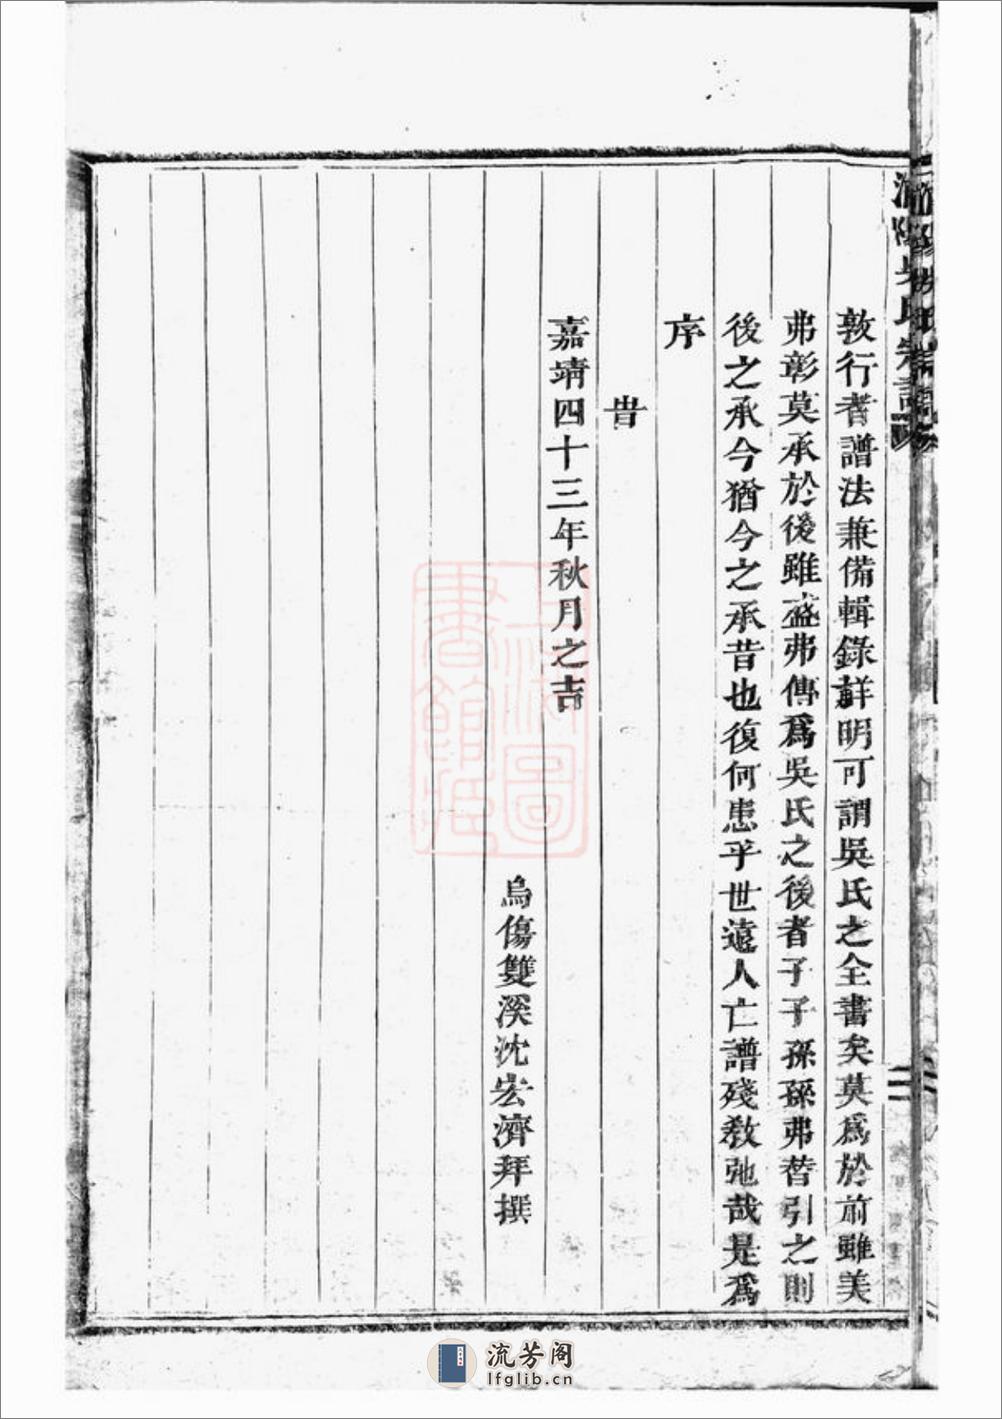 浦陽吳氏宗譜
敦行者譜法兼備輯錄詳明可謂吳氏之全書矣莫爲於前雖美
弗彰莫承於後雖盛弗傳爲吳氏之後者子子孫孫弗替引之則
後之承今猶今之承昔也復何患乎世遠人亡譜殘教弛哉是爲
序
旹
嘉靖四十三年秋月之吉
烏傷雙溪沈宏濟拜撰
上海圖
書館藏
流芳阁
lfglib.cn